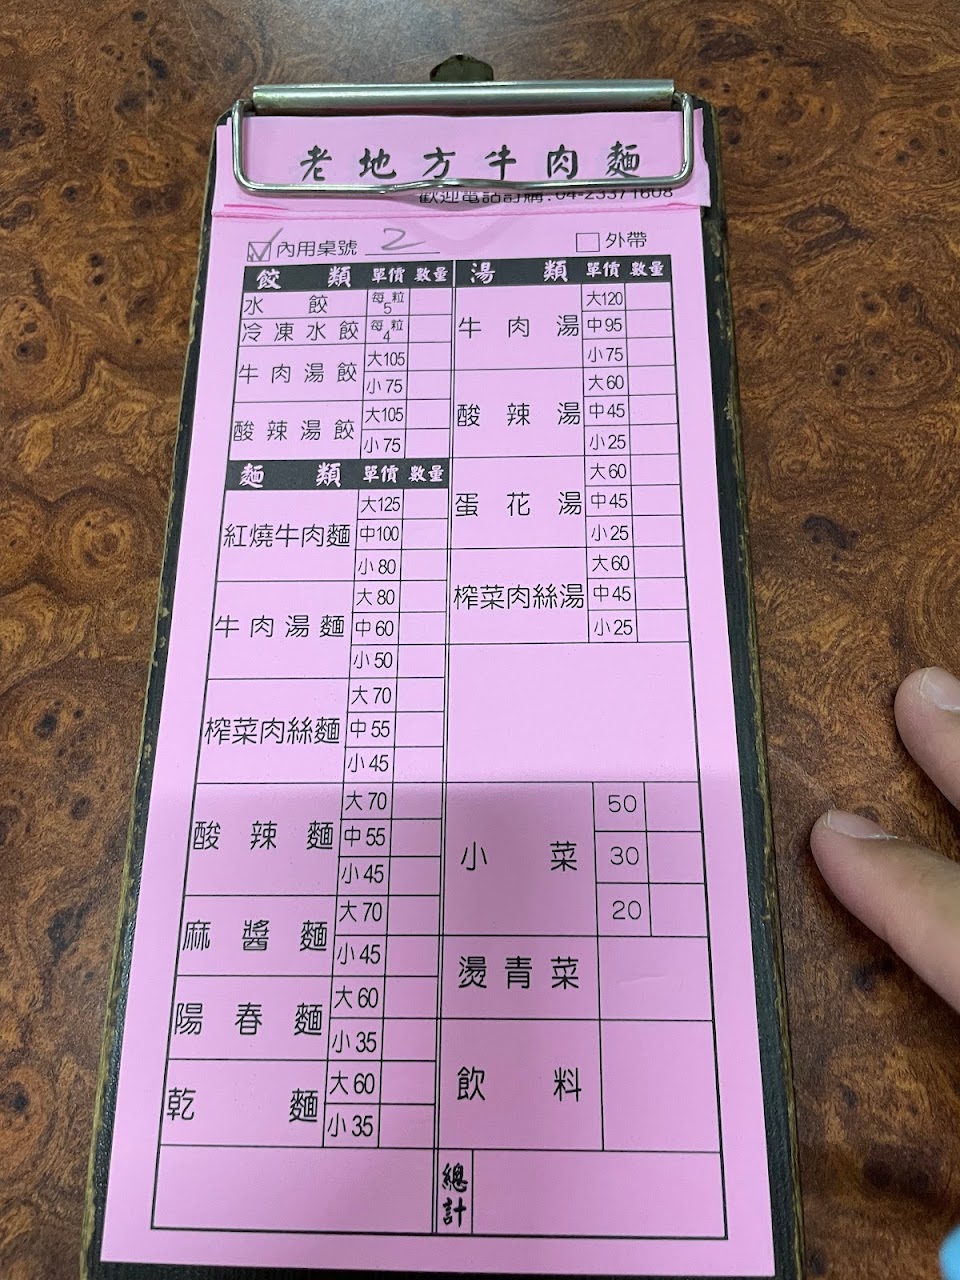 老地方牛肉麵
歡迎電話訂購:04-23371608
內用桌號 2
外帶
餃類 單價 數量
水餃 每粒5
冷凍水餃 每粒4
牛肉湯餃 大105
小75
酸辣湯餃 大105
小75
麵類 單價 數量
紅燒牛肉麵 大125
中100
小80
牛肉湯麵 大80
中60
小50
榨菜肉絲麵 大70
中55
小45
酸辣麵 大70
中55
小45
麻醬麵 大70
小45
陽春麵 大60
小35
乾麵 大60
小35
湯類 單價 數量
牛肉湯 大120
中95
小75
酸辣湯 大60
中45
小25
蛋花湯 大60
中45
小25
榨菜肉絲湯 大60
中45
小25
小菜 50
30
20
燙青菜
飲料
總計